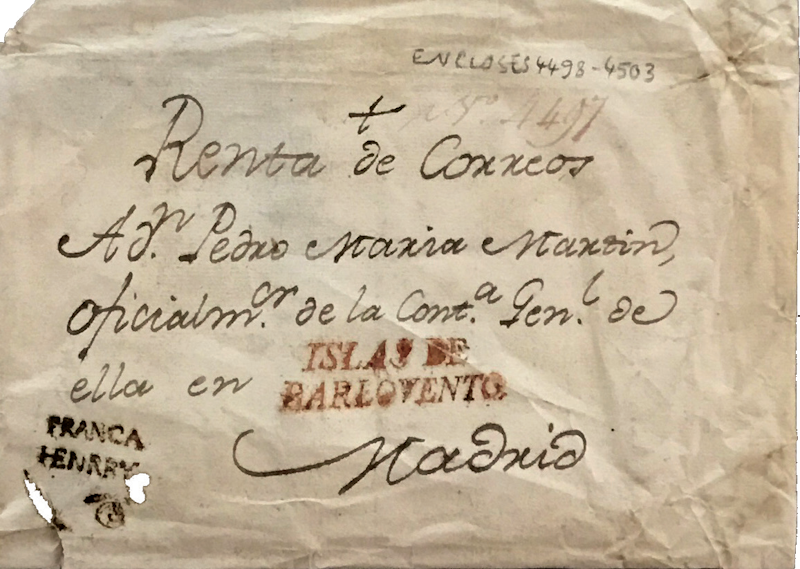 ENCLOSES 4498-4503
nº 4497
+
Renta de Correos
A dn. Pedro Maria Martin,
oficial mor. de la Conta. Genl. de
ella en
ISLAS DE
BARLOVENTO
Madrid
FRANCA